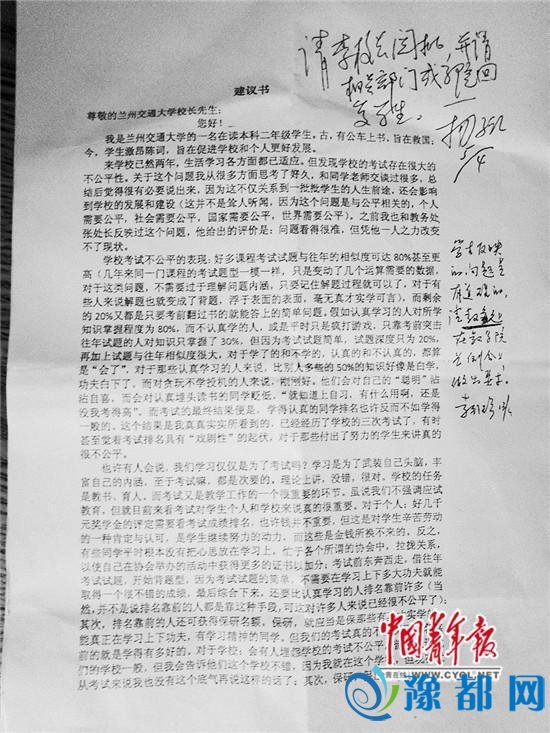 请李校长阅批 并请
相关部门或
学生。
5/4
建议书
尊敬的兰州交通大学校长先生:
您好!
我是兰州交通大学的一名在读本科二年级学生。古,有公车上书,旨在救国;
今,学生激昂陈词,旨在促进学校和个人更好发展。
来学校已然两年,生活学习各方面都已适应。但发现学校的考试存在很大的
不公平性。关于这个问题我从很多方面思考了好久,和同学老师交谈过很多,总
结后觉得很有必要说出来,因为这不仅关系到一批批学生的人生前途,还会影响
到学校的发展和建设(这并不是耸人听闻,因为这个问题是与公平相关的,个人
需要公平,社会需要公平,国家需要公平,世界需要公平)。之前我也和教务处
张处长反映过这个问题,他给出的评价是:问题看得很准,但凭他一人之力改变
不了现状。
学校考试不公平的表现:好多课程考试试题与往年的相似度可达 80%甚至更
高(几年来同一门课程的考试题型一模一样,只是变动了几个运算需要的数据,
对于这类问题,不需要过于理解问题内涵,只要记住解题过程就可以了,对于有
些人来说解题也就变成了背题,浮于表面的表面,毫无真才实学可言),而剩余
的 20%又都是只要考前翻过书的就能答上的简单问题。假如认真学习的人对所学
知识掌握程度为 80%,而不认真学的人,或是平时只是疯打游戏,只靠考前突击
往年试题的人对知识只掌握了 30%,但因为考试试题简单,试题深度只为 20%,
再加上试题与往年相似度很大,对于学了的和不学的,认真的和不认真的,都算
是“会了”,对于那些认真学习的人来说,比别人多些的 50%的知识好像是白学,
功夫白下了。而对贪玩不学投机的人来说,刚刚好。他们会对自己的“聪明”沾
沾自喜,而会对认真埋头读书的同学贬低,“就知道上自习,有什么用啊,还是
没我考得高”。而考试的最终结果便是,学得认真的同学排名也许反而不如学得
一般的。这个结果是我真真实实所看到的,已经经历了学校的三次考试了,有时
甚至觉着考试排名具有“戏剧性”的起伏,对于那些付出了努力的学生来讲真的
很不公平。
也许有人会说,我们学习仅仅是为了考试吗?学习是为了武装自己头脑,丰
富自己的内涵,至于考试嘛,都是次要的。理论上讲,没错,很对。学校的任务
是教书、育人。而考试又是教学工作的一个很重要的环节。虽说我们不强调应试
教育,但就目前来看考试对学生个人和学校来说真的很重要。对于个人:好几千
元奖学金的评定需要看考试成绩排名,也许钱并不重要,但这是对学生辛苦劳动
的一种肯定与认可,是学生继续努力的动力,而这些是金钱所换不来的。反之,
有些同学平时根本没有把心思放在学习上,忙于各个所谓的协会中,拉拢关系,
以使自己在协会举办的活动中获得更多的证书以加分;考试前东奔西走,借往年
考试试题,开始背题型,因为考试试题的简单,不需要在学习上下多大功夫就能
取得一个很不错的成绩,最后综合下来,还要比认真学习的人排名靠前许多(当
然,并不是说排名靠前的人都是靠这种手段,可这对许多人来说已经很不公平了);
其次,排名靠前的人还可获得保研名额。保研,就应当是保那些有
能真正在学习上下功夫,有学习精神的同学。但我们的考试真的不
前的就是学得有多好的。对于学校:会有人埋怨学校的考试不公平,
们的学校一般,但我会告诉他们这个学校不错,因为我就在这个学校,但
从考试来说我也没有这个底气再说这样的话了;其次,保研
学生反映
的问题是
有道理的,
请教务处
在
做出要求。
中国青年报
中青在线 www.CYOL.net
豫都网